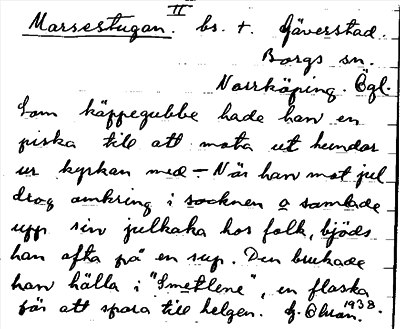 II
Marsestugan. bs. t. Gäverstad.
Borgs sn.
Norrköping. Ögl.
Som käppegubbe hade han en
piska till att mota ut hundar
ur kyrkan med – När han mot jul
drog omkring i socknen o samlade
upp sin julkaka hos folk, bjöds
han ofta på en sup. Den brukade
han hälla i "Smetlene", en flaska
för att spara till helgen. 1938.